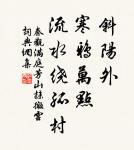 斜陽外
寒鴉萬點
流水繞孤村
秦觀滿庭芳山抹微雲
詞典佣集